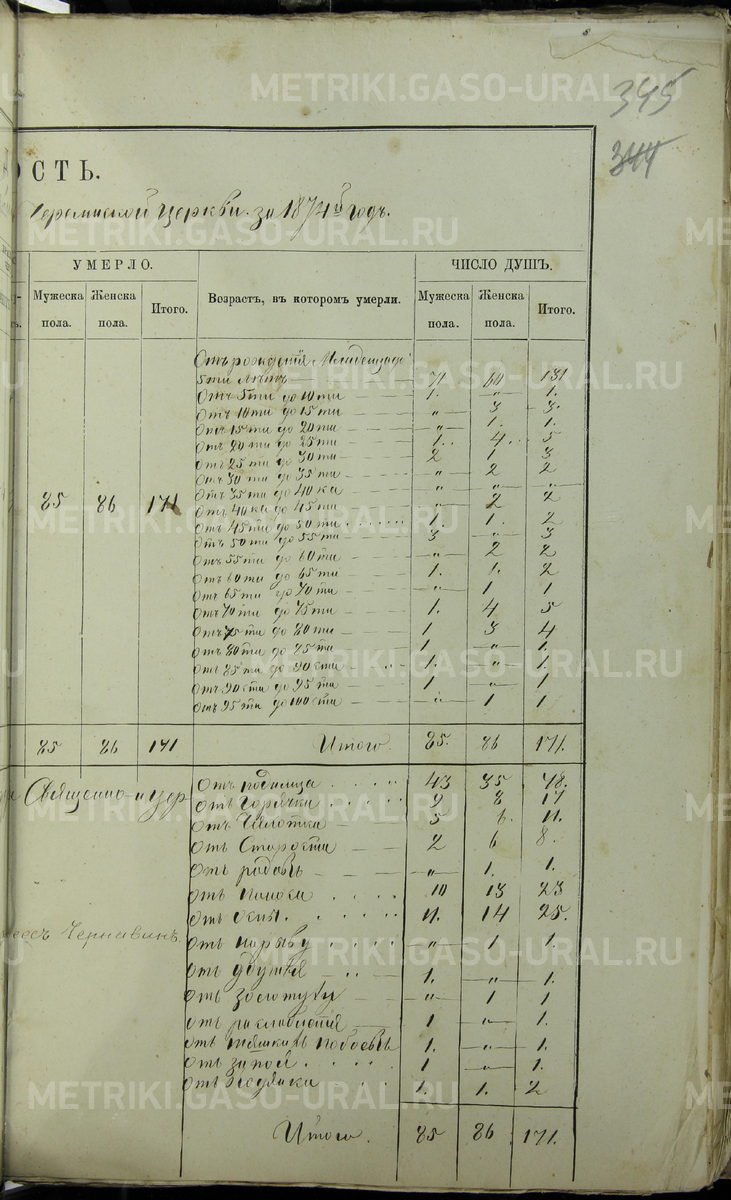 345
344
ОСТЬ.
Церкви за 1874й годъ.
УМЕРЛО. ЧИСЛО ДУШЪ.
Мужеска пола. Женска пола. Итого. Возрастъ, въ которомъ умерли. Мужеска пола. Женска пола. Итого.
Отъ рожденія Младенца до
5ти лѣтъ 71 60 131
Отъ 5ти до 10ти 1. „ 1.
Отъ 10ти до 15ти „ 3 3.
Отъ 15ти до 20ти „ 1. 1.
Отъ 20ти до 25ти 1. 4. 5
Отъ 25ти до 30ти 2 1 3
Отъ 30ти до 35ти „ 2 2
Отъ 35ти до 40ка „ „ „
85 86 171 Отъ 40ка до 45ти „ 2 2
Отъ 45ти до 50ти 1. 1. 2
Отъ 50ти до 55ти 3 „ 3
Отъ 55ти до 60ти „ 2 2
Отъ 60ти до 65ти 1. 1. 2
Отъ 65ти до 70ти „ 1 1
Отъ 70ти до 75ти 1. 4 5
Отъ 75ти до 80ти 1 3 4
Отъ 80ти до 85ти 1 „ 1.
Отъ 85ти до 90сти 1. „ 1.
Отъ 90сти до 95ти 1 „ 1
Отъ 95ти до 100сти „ 1 1
85 86 171 Итого. 85. 86 171.
Священно-и цер
Отъ родимца 43 35 78.
Отъ Горячки 9 8 17
Отъ Чахотки 5 6. 11.
Отъ Старости 2 6 8.
Отъ родовъ „ 1. 1.
Отъ поноса 10 13 23
Отъ Оспы. 11. 14 25.
Чернавинъ.
Отъ нарыву „ 1 1.
Отъ удушья 1. „ 1.
Отъ золотухи „ 1 1
Отъ разслабленія 1 „ 1.
Отъ тяжкихъ побоевъ 1. „ 1.
Отъ запоя 1 „ 1.
Отъ водянки 1. 1. 2
Итого. 85 86 171.
METRIKI.GASO-URAL.RU